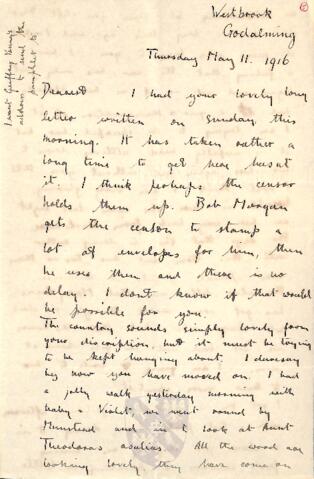 Westbrook
Godalming
Thursday May 11. 1916
I want Geoffrey Young's
address to send the
pamphlet to.
Dearest I had your lovely long
letter written on Sunday this
morning. It has taken rather a
long time to get here hasnt
it. I think perhaps the censor
holds them up. Bob Morgan
gets the censor to stamp a
lot of envelopes for him, then
he uses them and there is no
delay. I dont know if that would
be possible for you.
The country sounds simply lovely from
your discription, but it must be trying
to be kept hanging about. I daresay
by now you have moved on. I had
a jolly walk yesterday morning with
baby & Violet, we went round by
Munstead and in to look at Aunt
Theodora's azalias. All the wood are
looking lovely they have come on